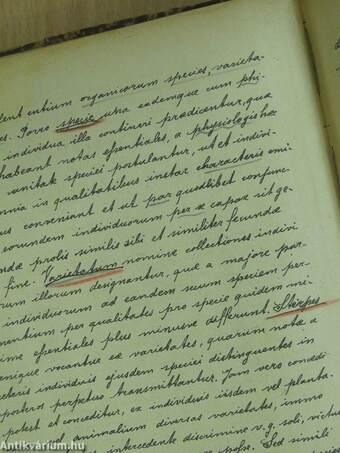 lent entium organicorum species, varieta-
es. Porro specie una eademque cum phi-
individua illa contineri praedicentur, quae
habeant notas essentiales, a physiologis ha
unitak speciei postulantur, ut et indivi-
mnia in qualitatibus inetax characteris omi
us conveniant et ut par quodlibet confunc-
eorundem individuorum per se capax sit ge-
ndae prolis similis sibi et similiter fecundae
fine. Varietatum nomine collectiones indivi
rum illorum designantur, quae a majore par-
individuorum ad eandem seum speciem per-
nentium per qualitates pro specie quidem mi-
ime essentiales plus minusve differunt. Stirpes
enique vocantur eae varietates, quarum nota a
cteris individuis ejusdem speciei distinguentes in
posteros perpetuo transmittantur. Jam vero concedi
potest et conceditur, ex individuis iisdem vel planta-
animalium diversas varietates, immo
intercedente discrimine v. g. soli, victus
posse. Sed simili
antikvarium.hu